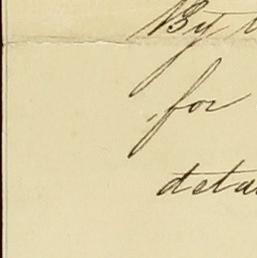 By
for
deta